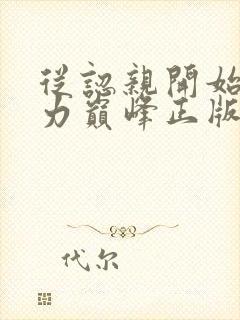 從認親開始
力巔峰正版
代尔